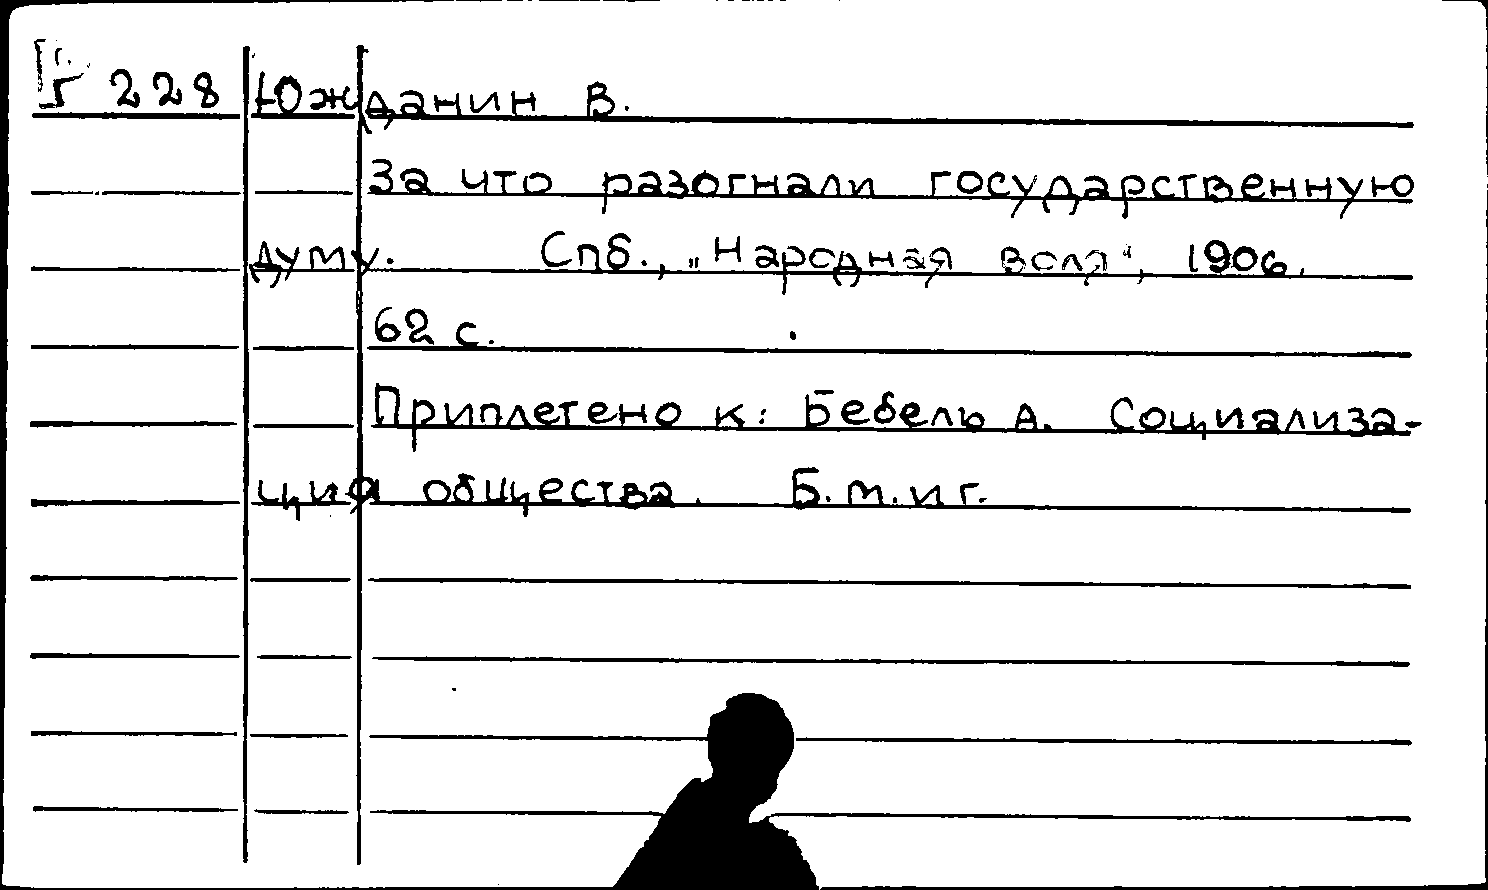 228 Южданин В.
За что разогнали государственную
думу. Спб., „Народная воля“, 1906.
62 с.
Приплетено к: Бебель А. Социализа-
ция общества. Б.м.и г.